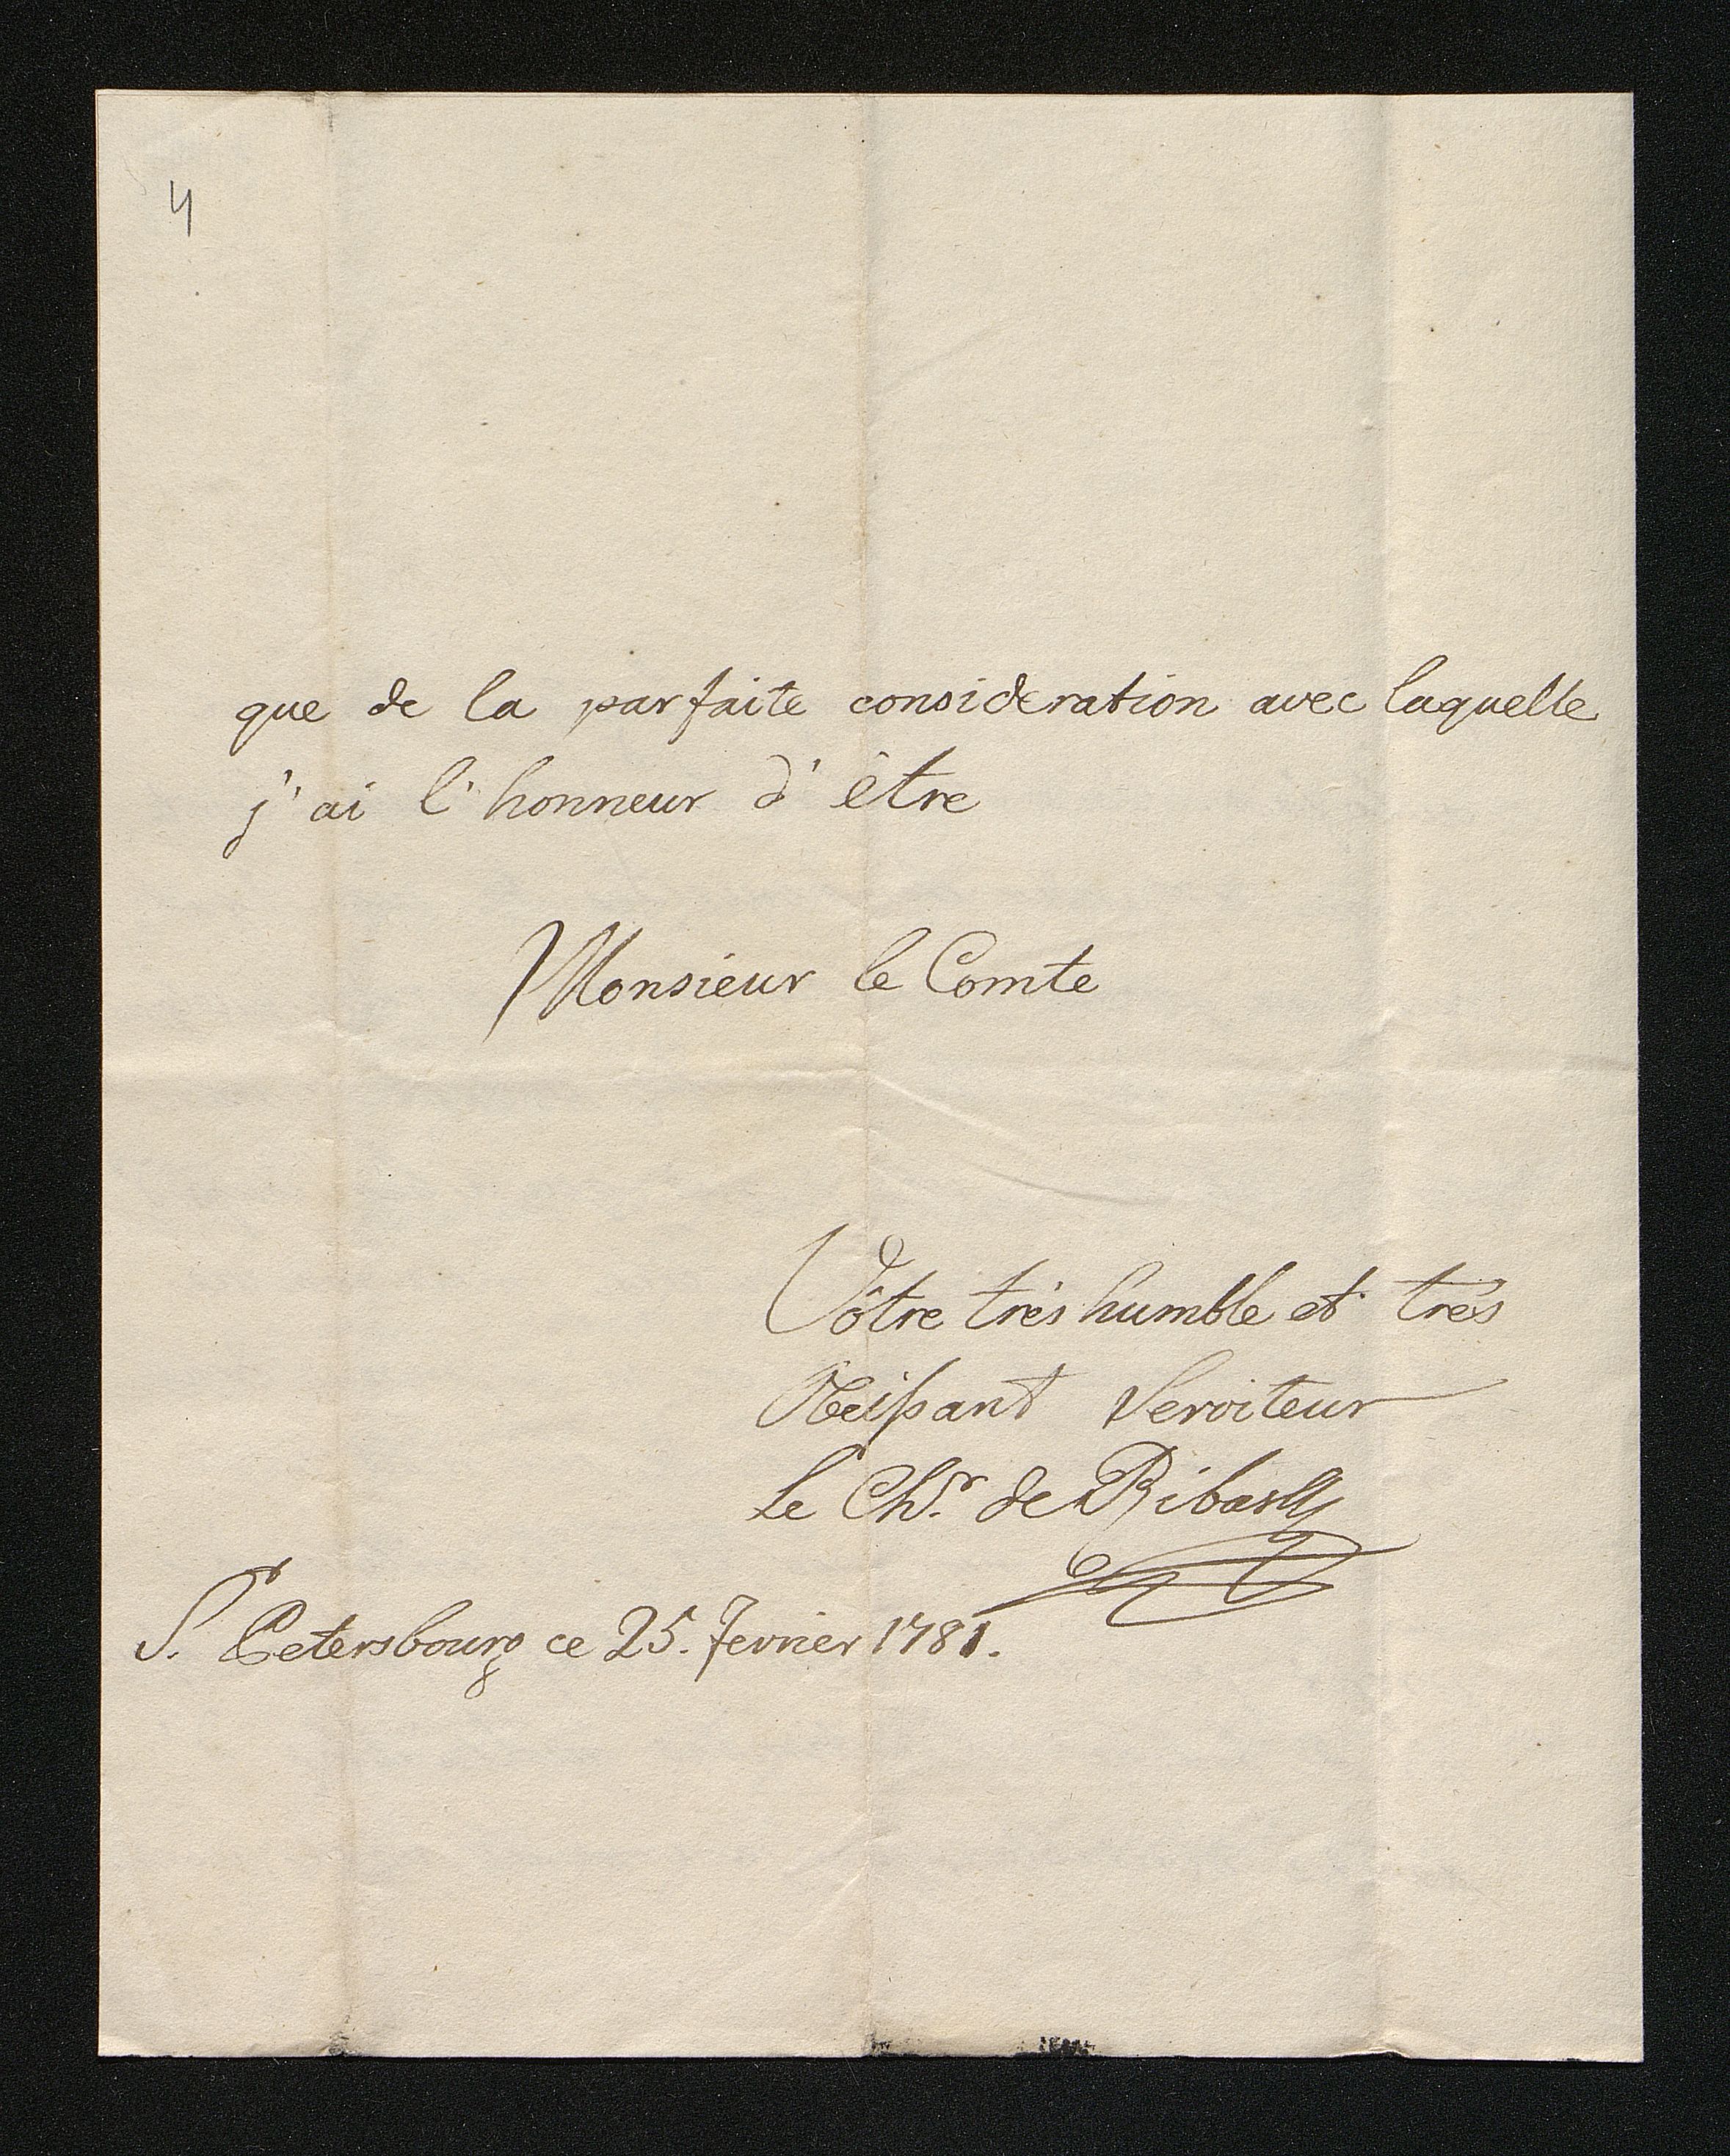 4
que de la parfaite consideration avec laquelle
j'ai l'honneur d'être
Monsieur le Comte
Vôtre trés humble et trés
Obeissant Serviteur
Le Chr. de Ribas
S. Petersbourg ce 25. Fevrier 1781.